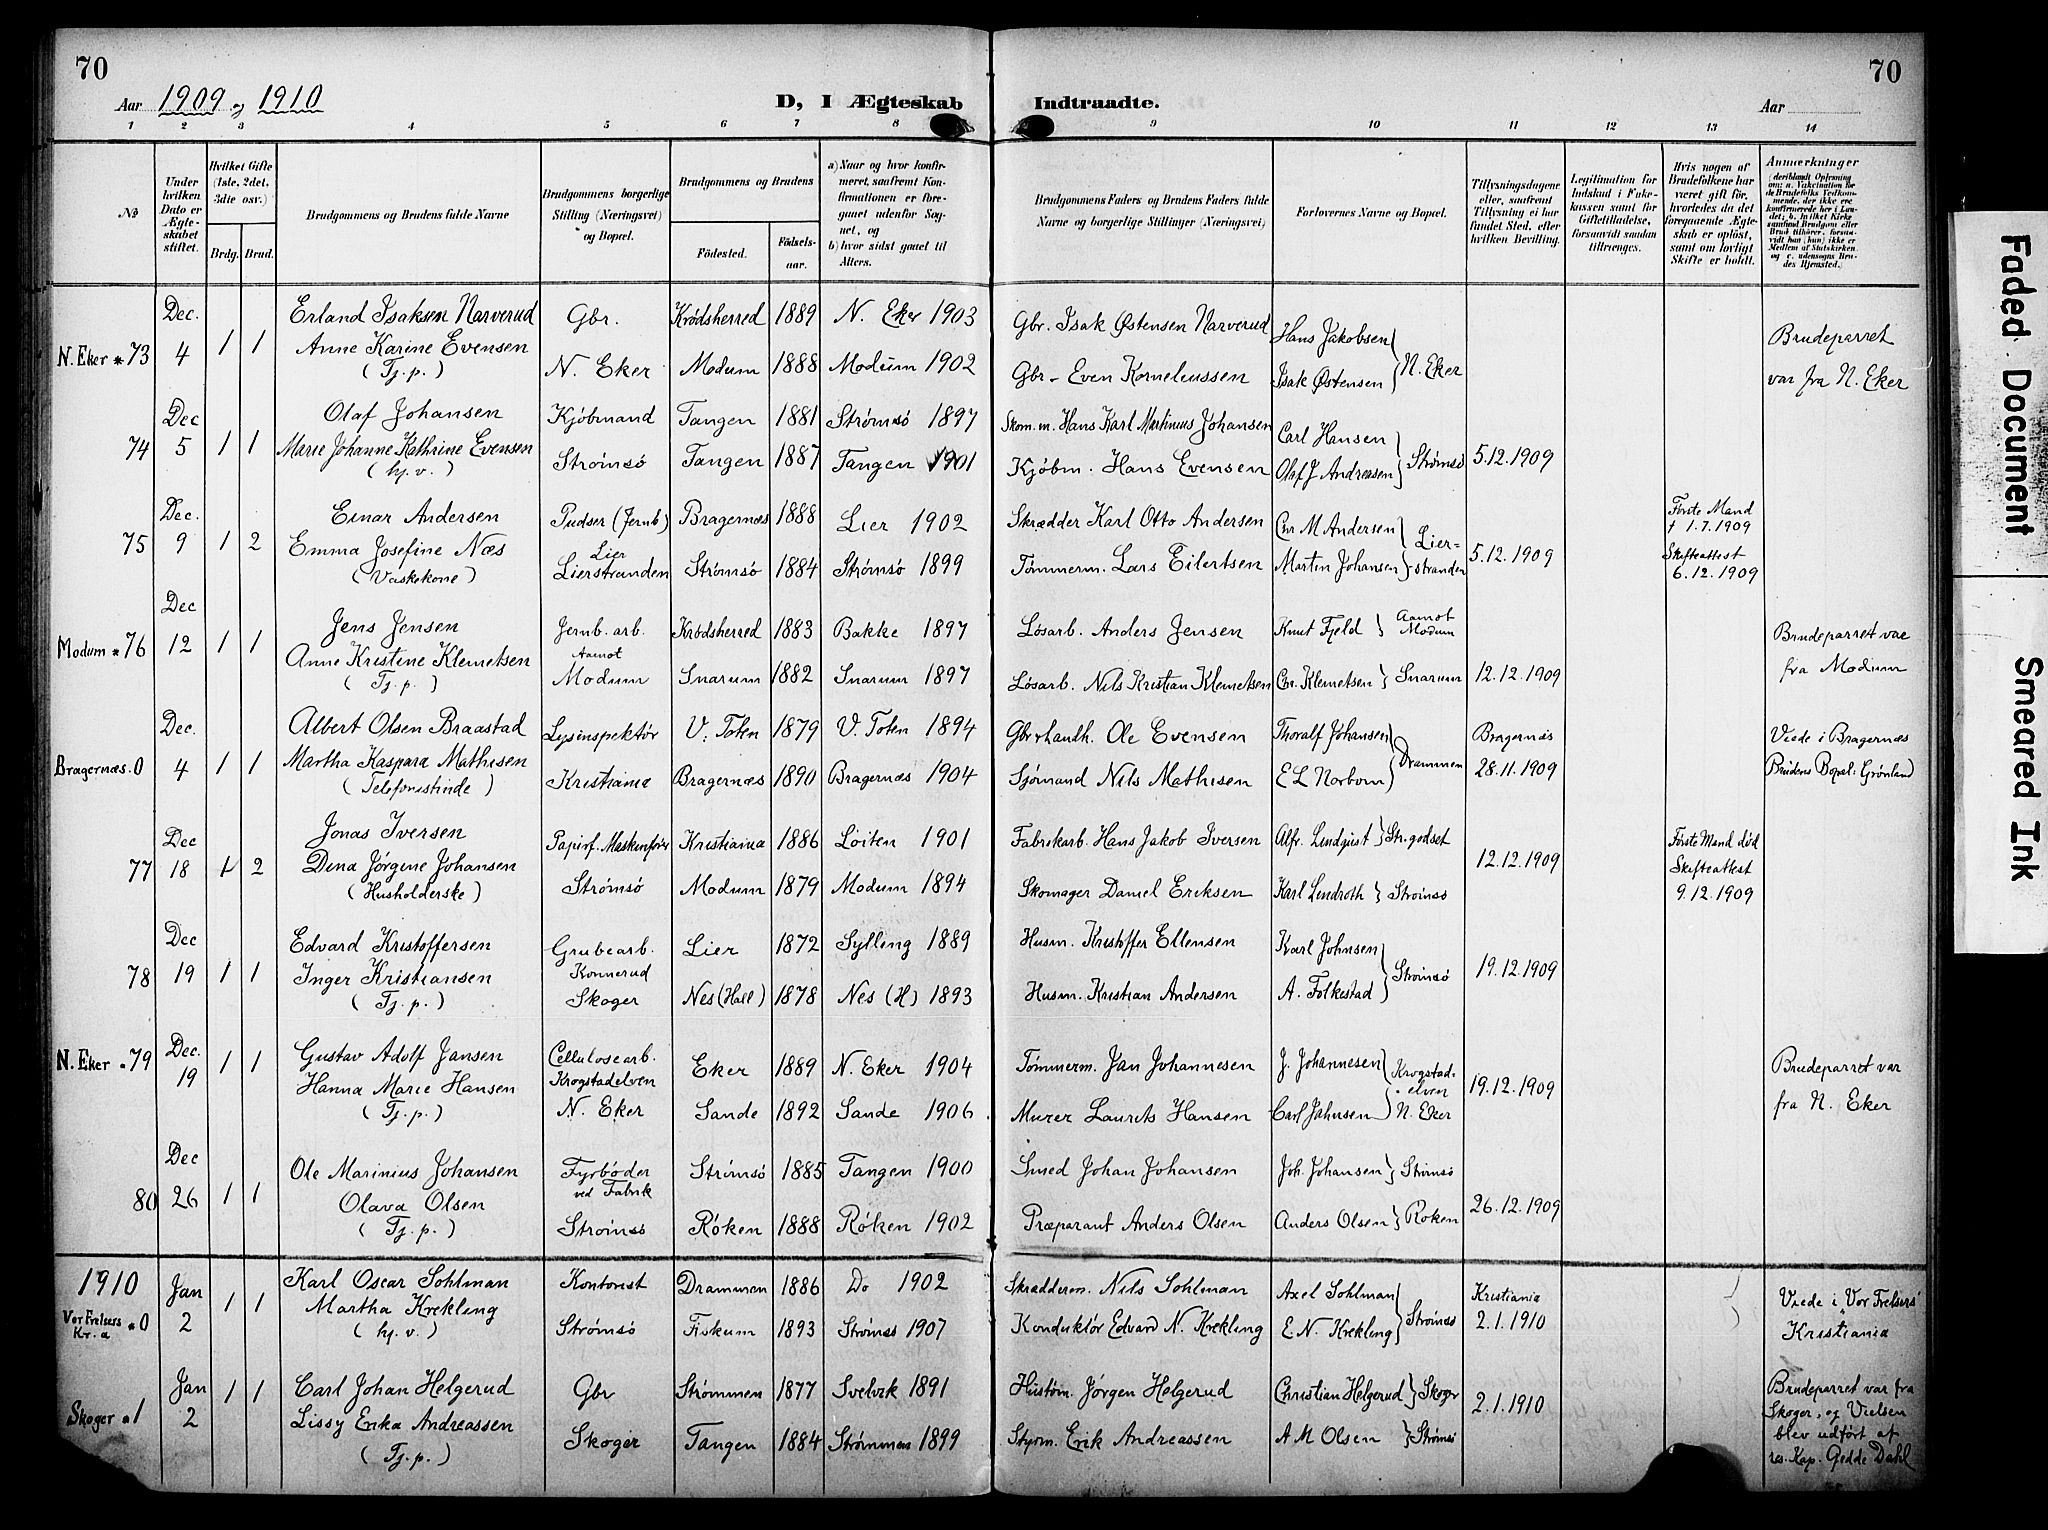 70
Aar 1909 og 1910
D, I Ægteskab
Indtraadte.
Aar
70
1 2 3 4 5 6 7 8 9 10 11 12 13 14
No
Under hvilken Dato er Ægteskabet stiftet.
Hvilket Gifte (1ste, 2det, 3die osv.)
Brdg. Brud.
Brudgommens og Brudens fulde Navne
Brudgommens borgerlige Stilling (Næringsvei) og Bopæl.
Brudgommens og Brudens
Födested.
Födselsaar.
a) Naar og hvor konfirmeret, saafremt Konfirmationen er foregaaet udenfor Sognet, og
b) hvor sidst gaaet til Alters.
Brudgommens Faders og Brudens Faders fulde Navne og borgerlige Stillinger (Næringsvei)
Forlovernes Navne og Bopæl.
Tillysningsdagene eller, saafremt Tillysning ei har fundet Sted, efter hvilken Bevilling.
Legitimation for Indskud i Enkekassen samt for Giftetilladelse, forsaavidt saadan tiltrænges.
Hvis nogen af Brudefolkene har været gift för, hvorledes da det foregaaende Ægteskab er oplöst, samt om lovligt Skifte er holdt.
Anmerkninger
N. Eker 73 Dec. 4 1 1 Erland Isaksen Narverud Gbr. Krødsherred 1889 N. Eker 1903 Gbr. Isak Østensen Narverud Hans Jakobsen Brudeparret
Anne Karine Evensen (Tj.p.) N. Eker Modum 1888 Modum 1902 Gbr. Even Korneliussen Isak Østensen N. Eker var fra N. Eker
74 Dec 5 1 1 Olaf Johansen Kjöbmand Tangen 1881 Strømsö 1897 Skom.m. Hans Karl Martinius Johansen Carl Hansen
Marie Johanne Kathrine Evensen (hj.v.) Strømsö Tangen 1887 Tangen 1901 Kjöbm. Hans Evensen Olaf J Andreasen Strømsö 5.12.1909
75 Dec. 9 1 2 Einar Andersen Pudser (Jernb) Bragernæs 1888 Lier 1902 Skrædder Karl Otto Andersen Chr. M Andersen Første Mand † 1.7.1909
Emma Josefine Næs (Vaskekone) Lier Lierstranden Strømsö 1884 Strømsö 1899 Tömmerm. Lars Eilertsen Martin Johansen Lierstranden 5.12.1909 Skifteattest 6.12.1909
Modum 76 Dec 12 1 1 Jens Jensen Jernb. arb. Krødsherred 1883 Bakke 1897 Løsarb. Anders Jensen Knut Fjeld Aamot Modum Brudeparret var
Anne Kristine Klemetsen (Tj.p.) Aamot Modum Snarum 1882 Snarum 1897 Løsarb. Nils Kristian Klemetsen Chr. Klemetsen Snarum 12.12.1909 fra Modum
Bragernæs 0 Dec. 4 1 1 Albert Olsen Braastad Lysinspektör V. Toten 1879 V. Toten 1894 Gbrhandh. Ole Evensen Thoralf Johansen Bragernæs Viede i Bragernæs
Martha Kaspara Mathisen (Telefonistinde) Kristiania Bragernæs 1890 Bragernæs 1904 Sjømand Nils Mathisen E L Norbom Drammen 28.11.1909 Brudens Bopæl: Grönland
77 Dec 18 1 2 Jonas Iversen Papirf. Maskinfører Kristiania 1886 Löiten 1901 Fabrikarb. Hans Jakob Iversen Alfr. Lindquist Str.godset Første Mand död
Dina Jørgine Johansen (Husholderske) Strømsö Modum 1879 Modum 1894 Skomager Daniel Eriksen Karl Lindroth Strømsö 12.12.1909 Skifteattest 9.12.1909
78 Dec 19 1 1 Edvard Kristoffersen Grubearb. Lier 1872 Sylling 1889 Husm. Kristoffer Ellensen Karl Johnsen
Inger Kristiansen (Tj.p.) Konnerud Skoger Nes (Hall) 1878 Nes (H) 1893 Husm. Kristian Andersen A. Folkestad Strømsö 19.12.1909
N. Eker 79 Dec. 19 1 1 Gustav Adolf Jansen Cellulosearb. Eker 1889 N. Eker 1904 Tømmerm. Jan Johannesen J. Johannesen Brudeparret var
Hanna Marie Hansen (Tj.p.) Krogstadelven N. Eker Sande 1892 Sande 1906 Murer Laurits Hansen Carl Jahnsen Krogstadelven N. Eker 19.12.1909 fra N. Eker
80 Dec 26 1 1 Ole Marinius Johansen Fyrböder ved Fabrik Strømsö 1885 Tangen 1900 Smed Johan Johansen Joh. Johansen Strømsö
Olava Olsen (Tj.p.) Strømsö Röken 1888 Röken 1902 Præparant Anders Olsen Anders Olsen Röken 26.12.1909
1910
Vor Frelsers Kr.a 0 Jan 2 1 1 Karl Oscar Sohlman Kontorist Drammen 1886 Do 1902 Skrædderm. Nils Sohlman Axel Sohlman Kristiania Viede i "Vor Frelsers"
Martha Krekling (hj.v.) Strømsö Fiskum 1893 Strømsö 1907 Konduktör Edvard N. Krekling E. N. Krekling Strømsö 2.1.1910 Kristiania
Skoger 1 Jan 2 1 1 Carl Johan Helgerud Gbr Strømmen 1877 Svelvik 1891 Jørgen Helgerud Christian Helgerud Skoger 2.1.1910 Brudeparret var fra
Lissy Erika Andreassen (Tj.p.) Skoger Tangen 1884 Strømmen 1899 Styrm. Erik Andreassen A M Olsen Strømsö Skoger, og Vielsen blev udfört af res. Kap. Gedde Dahl
Faded Document
Smeared Ink